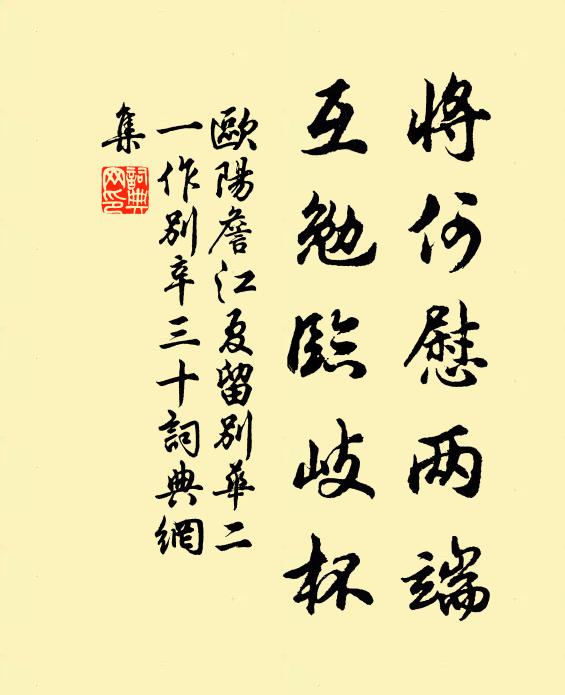 將何慰两端
互勉臨岐杯
歐陽詹江夏留別華二
一作別辛三十詞典網
集
詞典
网印